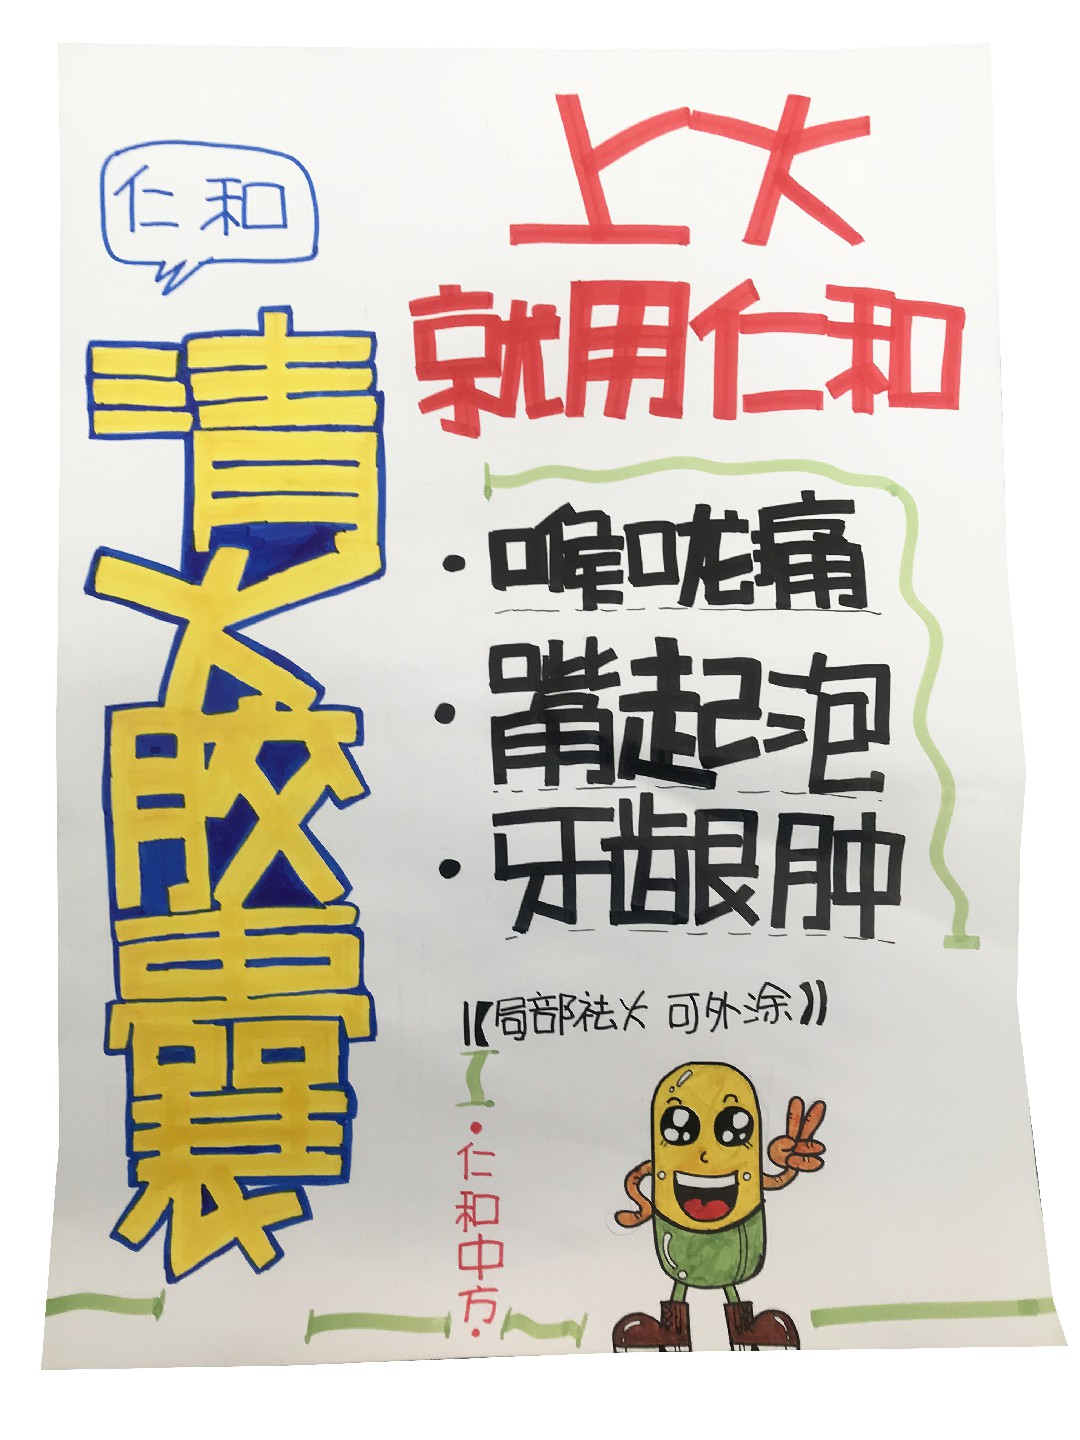 仁和
清火胶囊
上火
就用仁和
·喉咙痛
·嘴起泡
·牙龈肿
《【局部祛火 可外涂》》
·仁和中方·